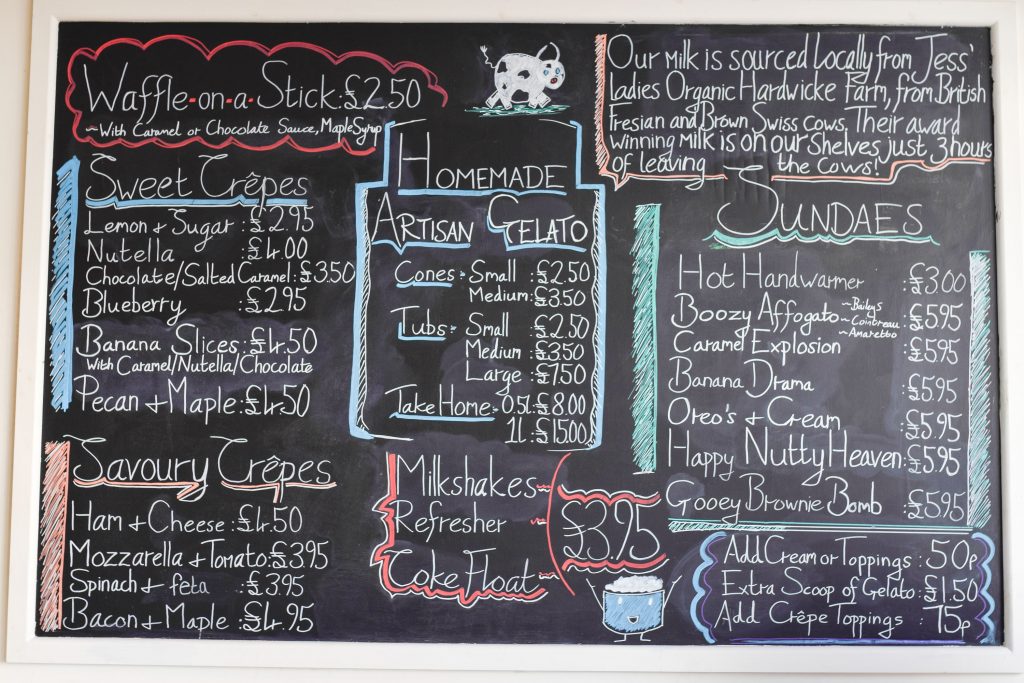 Waffle-on-a-Stick: £2.50
~With Caramel or Chocolate Sauce, Maple Syrup
Our Milk is sourced locally from Jess'
ladies Organic Hardwicke Farm, from British
Fresian and Brown Swiss Cows. Their award
winning Milk is on our shelves just 3 hours
of leaving the cows!
Sweet Crêpes
Lemon & Sugar : £2.95
Nutella : £4.00
Chocolate/Salted Caramel : £3.50
Blueberry : £2.95
Banana Slices : £4.50
With Caramel/Nutella/Chocolate
Pecan & Maple : £4.50
Savoury Crêpes
Ham & Cheese : £4.50
Mozzarella & Tomato : £3.95
Spinach & feta : £3.95
Bacon & Maple : £4.95
Homemade
Artisan Gelato
Cones - Small : £2.50
Medium : £3.50
Tubs - Small : £2.50
Medium : £3.50
Large : £7.50
Take Home - 0.5l : £8.00
1l : £15.00
Milkshakes~
Refresher ~
Coke Float ~
£3.95
Sundaes
Hot Handwarmer : £3.00
Boozy Affogato ~Baileys : £5.95
~Cointreau
~Amaretto
Caramel Explosion : £5.95
Banana Drama : £5.95
Oreo's & Cream : £5.95
Happy Nutty Heaven : £5.95
Gooey Brownie Bomb : £5.95
Add Cream or Toppings : 50p
Extra Scoop of Gelato : £1.50
Add Crêpe Toppings : 75p